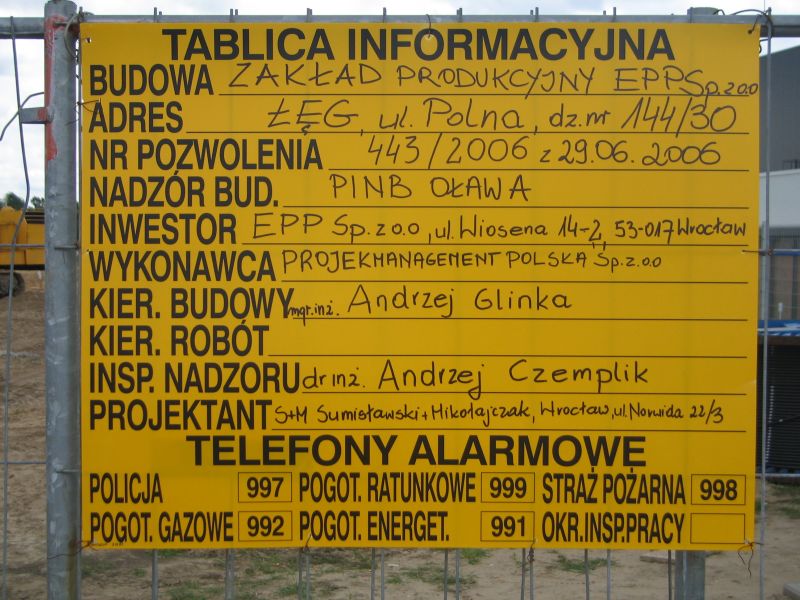 TABLICA INFORMACYJNA
BUDOWA ZAKŁAD PRODUKCYJNY EPP Sp. z o.o
ADRES ŁĘG, ul. Polna, dz. nr 144/30
NR POZWOLENIA 443/2006 z 29.06.2006
NADZÓR BUD. PINB OŁAWA
INWESTOR EPP Sp. z o.o, ul. Wiosena 14-2, 53-017 Wrocław
WYKONAWCA PROJEKMANAGEMENT POLSKA Sp. z.o.o
KIER. BUDOWY mgr.inż. Andrzej Glinka
KIER. ROBÓT
INSP. NADZORU dr inż. Andrzej Czemplik
PROJEKTANT S+M Sumisławski + Mikołajczak, Wrocław, ul. Norwida 22/3
TELEFONY ALARMOWE
POLICJA 997 POGOT. RATUNKOWE 999 STRAŻ POŻARNA 998
POGOT. GAZOWE 992 POGOT. ENERGET. 991 OKR.INSP.PRACY